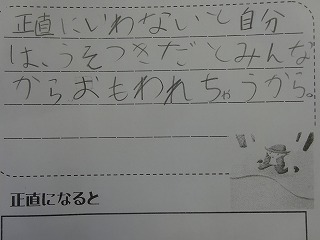 正直にいわないと自分
は、うそつきだとみんな
からおもわれちゃうから。
正直になると